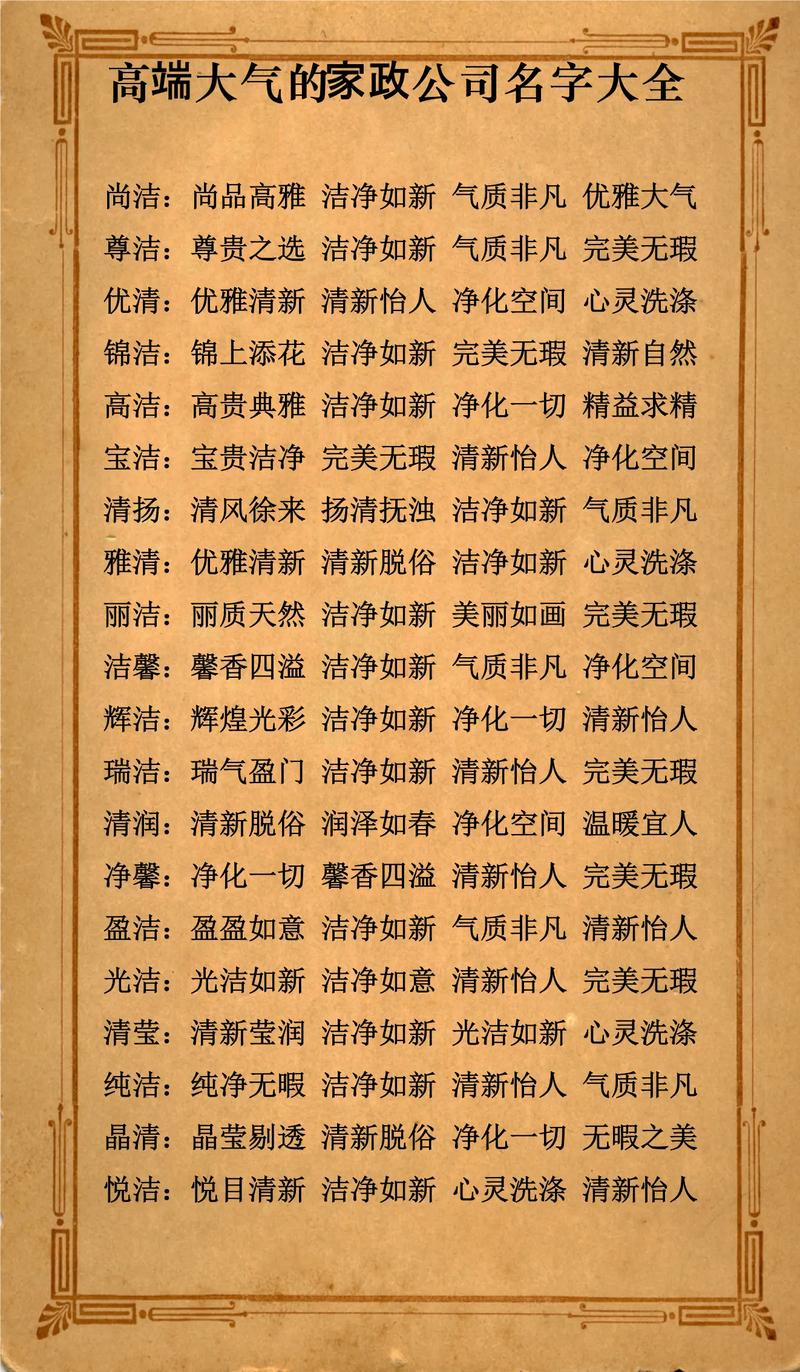 高端大气的家政公司名字大全
尚洁：尚品高雅 洁净如新 气质非凡 优雅大气
尊洁：尊贵之选 洁净如新 气质非凡 完美无瑕
优清：优雅清新 清新怡人 净化空间 心灵洗涤
锦洁：锦上添花 洁净如新 完美无瑕 清新自然
高洁：高贵典雅 洁净如新 净化一切 精益求精
宝洁：宝贵洁净 完美无瑕 清新怡人 净化空间
清扬：清风徐来 扬清抚浊 洁净如新 气质非凡
雅清：优雅清新 清新脱俗 洁净如新 心灵洗涤
丽洁：丽质天然 洁净如新 美丽如画 完美无瑕
洁馨：馨香四溢 洁净如新 气质非凡 净化空间
辉洁：辉煌光彩 洁净如新 净化一切 清新怡人
瑞洁：瑞气盈门 洁净如新 清新怡人 完美无瑕
清润：清新脱俗 润泽如春 净化空间 温暖宜人
净馨：净化一切 馨香四溢 清新怡人 完美无瑕
盈洁：盈盈如意 洁净如新 气质非凡 清新怡人
光洁：光洁如新 洁净如意 清新怡人 完美无瑕
清莹：清新莹润 洁净如新 光洁如新 心灵洗涤
纯洁：纯净无暇 洁净如新 清新怡人 气质非凡
晶清：晶莹剔透 清新脱俗 净化一切 无暇之美
悦洁：悦目清新 洁净如新 心灵洗涤 清新怡人